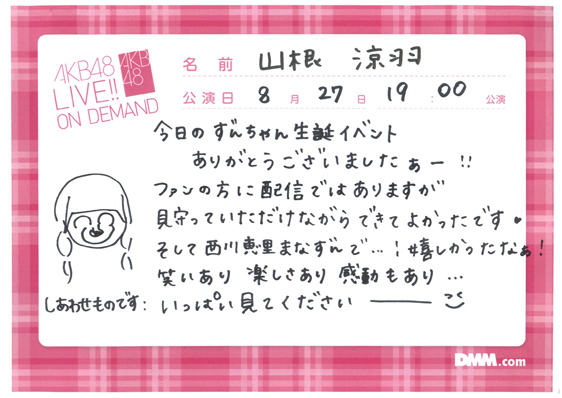 AKB48
LIVE!!
ON DEMAND
AKB
48
名前 山根 涼羽
公演日 8月27日 19:00公演
今日のずんちゃん生誕イベント
ありがとうございましたぁー!!
ファンの方に配信ではありますが
見守っていただけながらできてよかったです♥
そして西川恵里まなずんで…!嬉しかったなぁ!
笑いあり 楽しさあり 感動もあり…
しあわせものです: いっぱい見てください
DMM.com